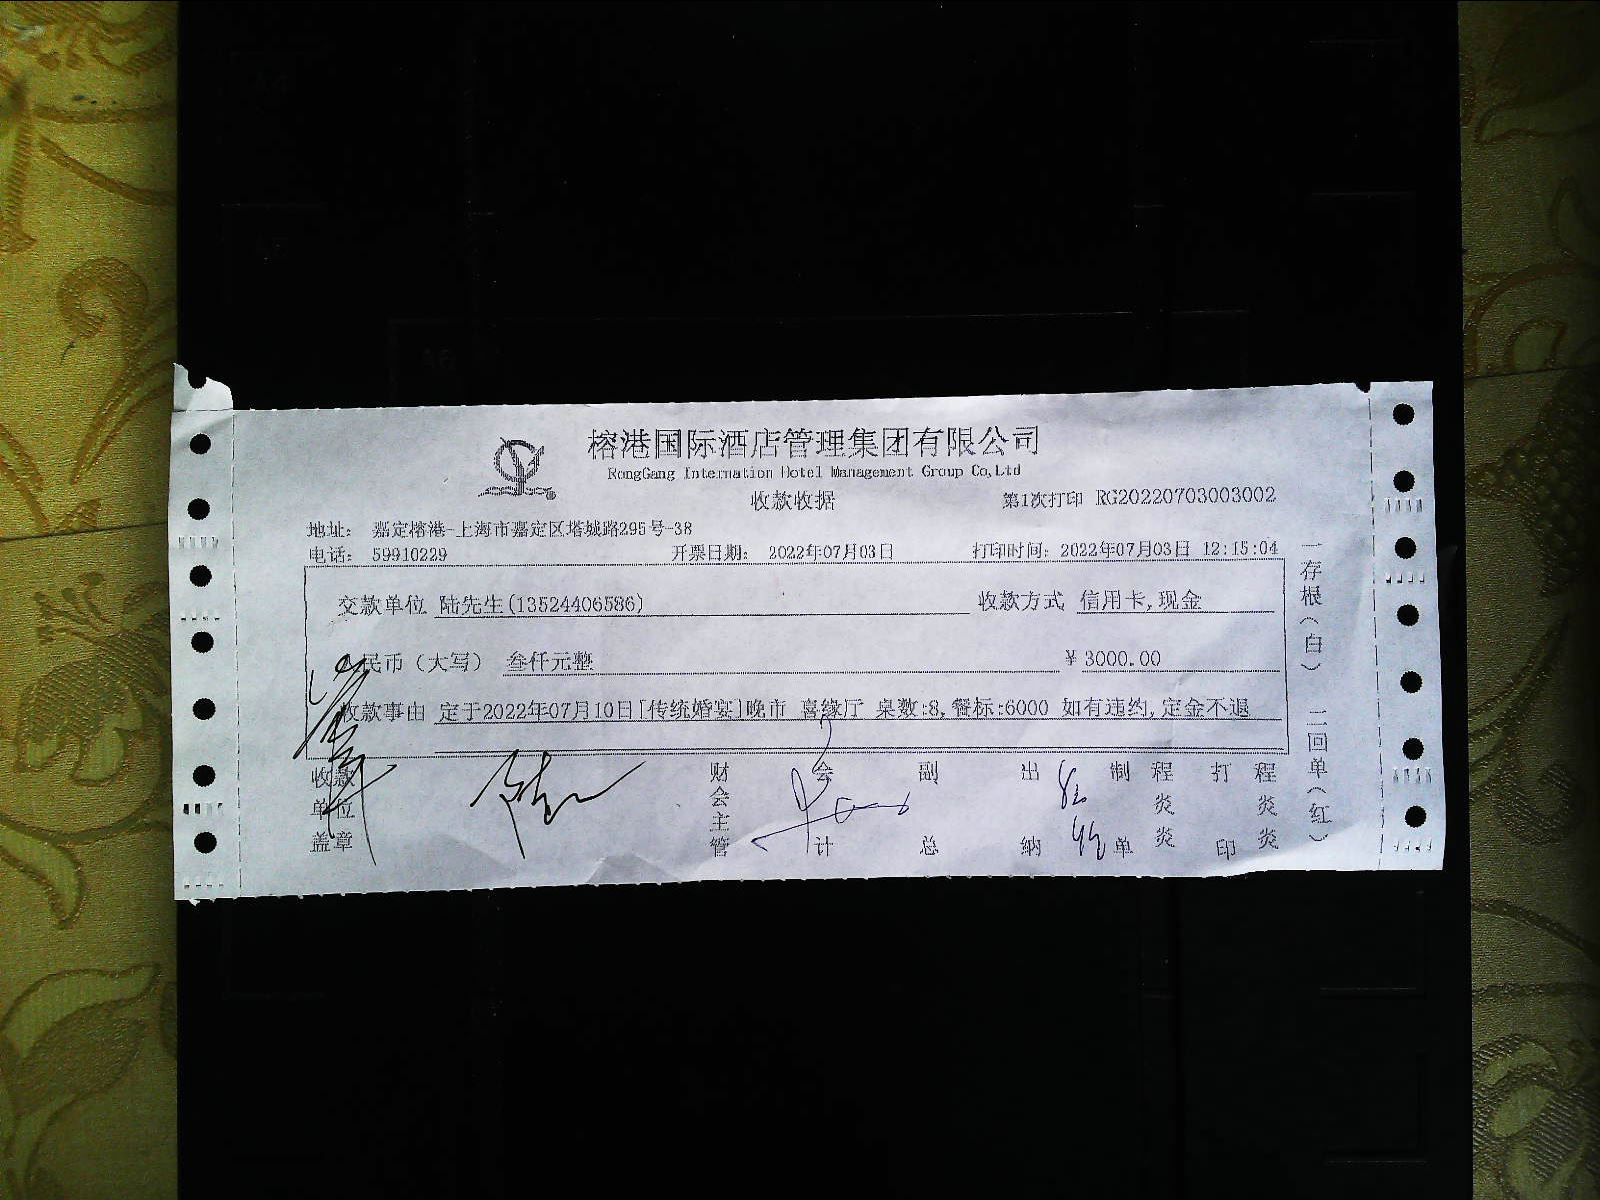 榕港国际酒店管理集团有限公司
RongGang Internation Hotel Management Group Co,Ltd
收款收据
第1次打印 RG20220703003002
地址： 嘉定榕港-上海市嘉定区塔城路295号-38
电话： 59910229 开票日期： 2022年07月03日 打印时间：2022年07月03日 12:15:04
交款单位 陆先生(13524406586) 收款方式 信用卡,现金
民币（大写） 叁仟元整 ¥3000.00
收款事由 定于2022年07月10日[传统婚宴]晚市 喜缘厅 桌数:8,餐标:6000 如有违约,定金不退
收款单位盖章
财会主管
会计
副总
出纳
制单 程炎炎
打印 程炎炎
一存根（白） 二回单（红）